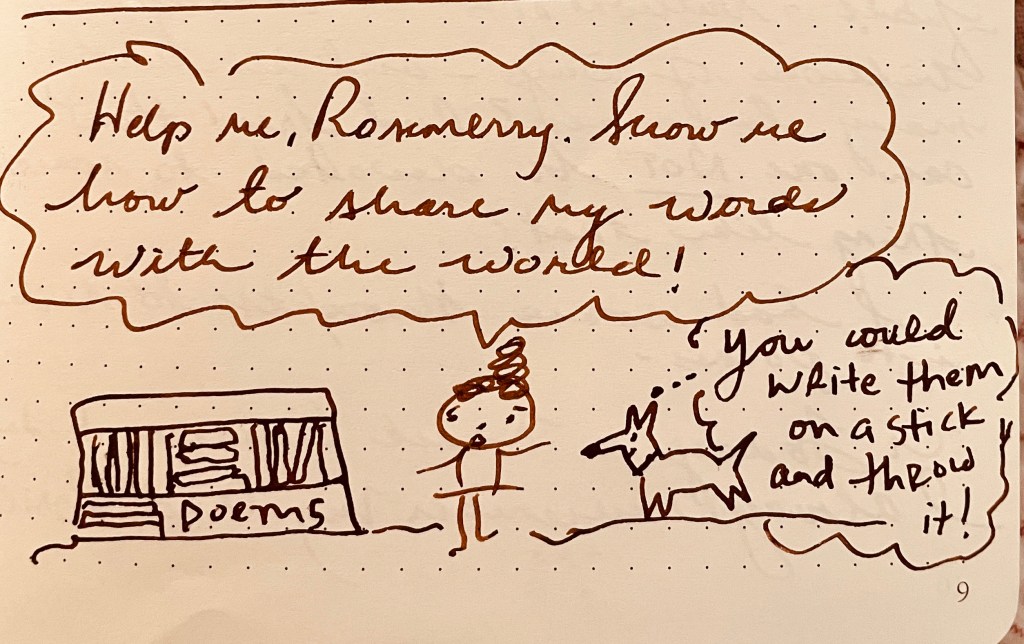 Help me, Rosemerry. Show me
how to share my words
with the world!
You could
write them
on a stick
and throw
it!
Poems
9